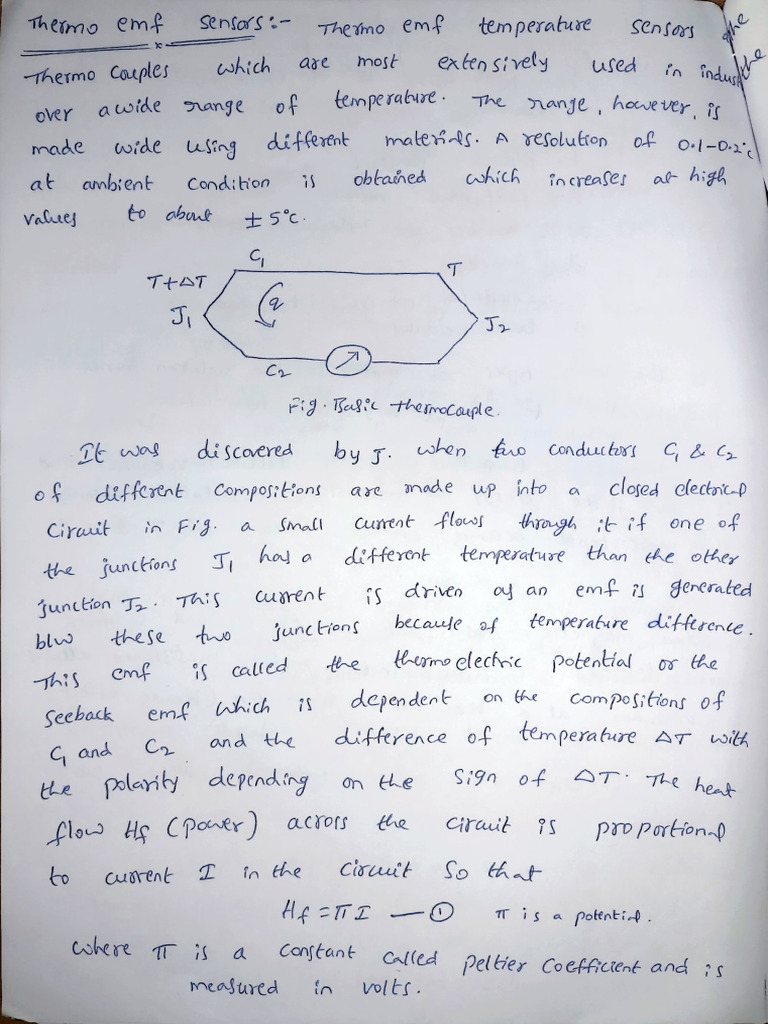 Thermo emf sensors:- Thermo emf temperature sensors the
Thermo couples which are most extensively used in indust the
over a wide range of temperature. The range, however, is
made wide using different materials. A resolution of 0.1-0.2°c
at ambient condition is obtained which increases at high
values to about ± 5°c.
C1
T+ΔT
T
J1
q
J2
C2
Fig. Basic thermocouple.
It was discovered by J. when two conductors C1 & C2
of different compositions are made up into a closed electrical
Circuit in Fig. a small current flows through it if one of
the junctions J1 has a different temperature than the other
junction J2. This current is driven as an emf is generated
b/w these two junctions because of temperature difference.
This emf is called the thermoelectric potential or the
Seeback emf which is dependent on the compositions of
C1 and C2 and the difference of temperature ΔT with
the polarity depending on the sign of ΔT. The heat
flow Hf (power) across the circuit is proportional
to current I in the circuit So that
Hf = πI —① π is a potential.
where π is a constant called peltier coefficient and is
measured in volts.